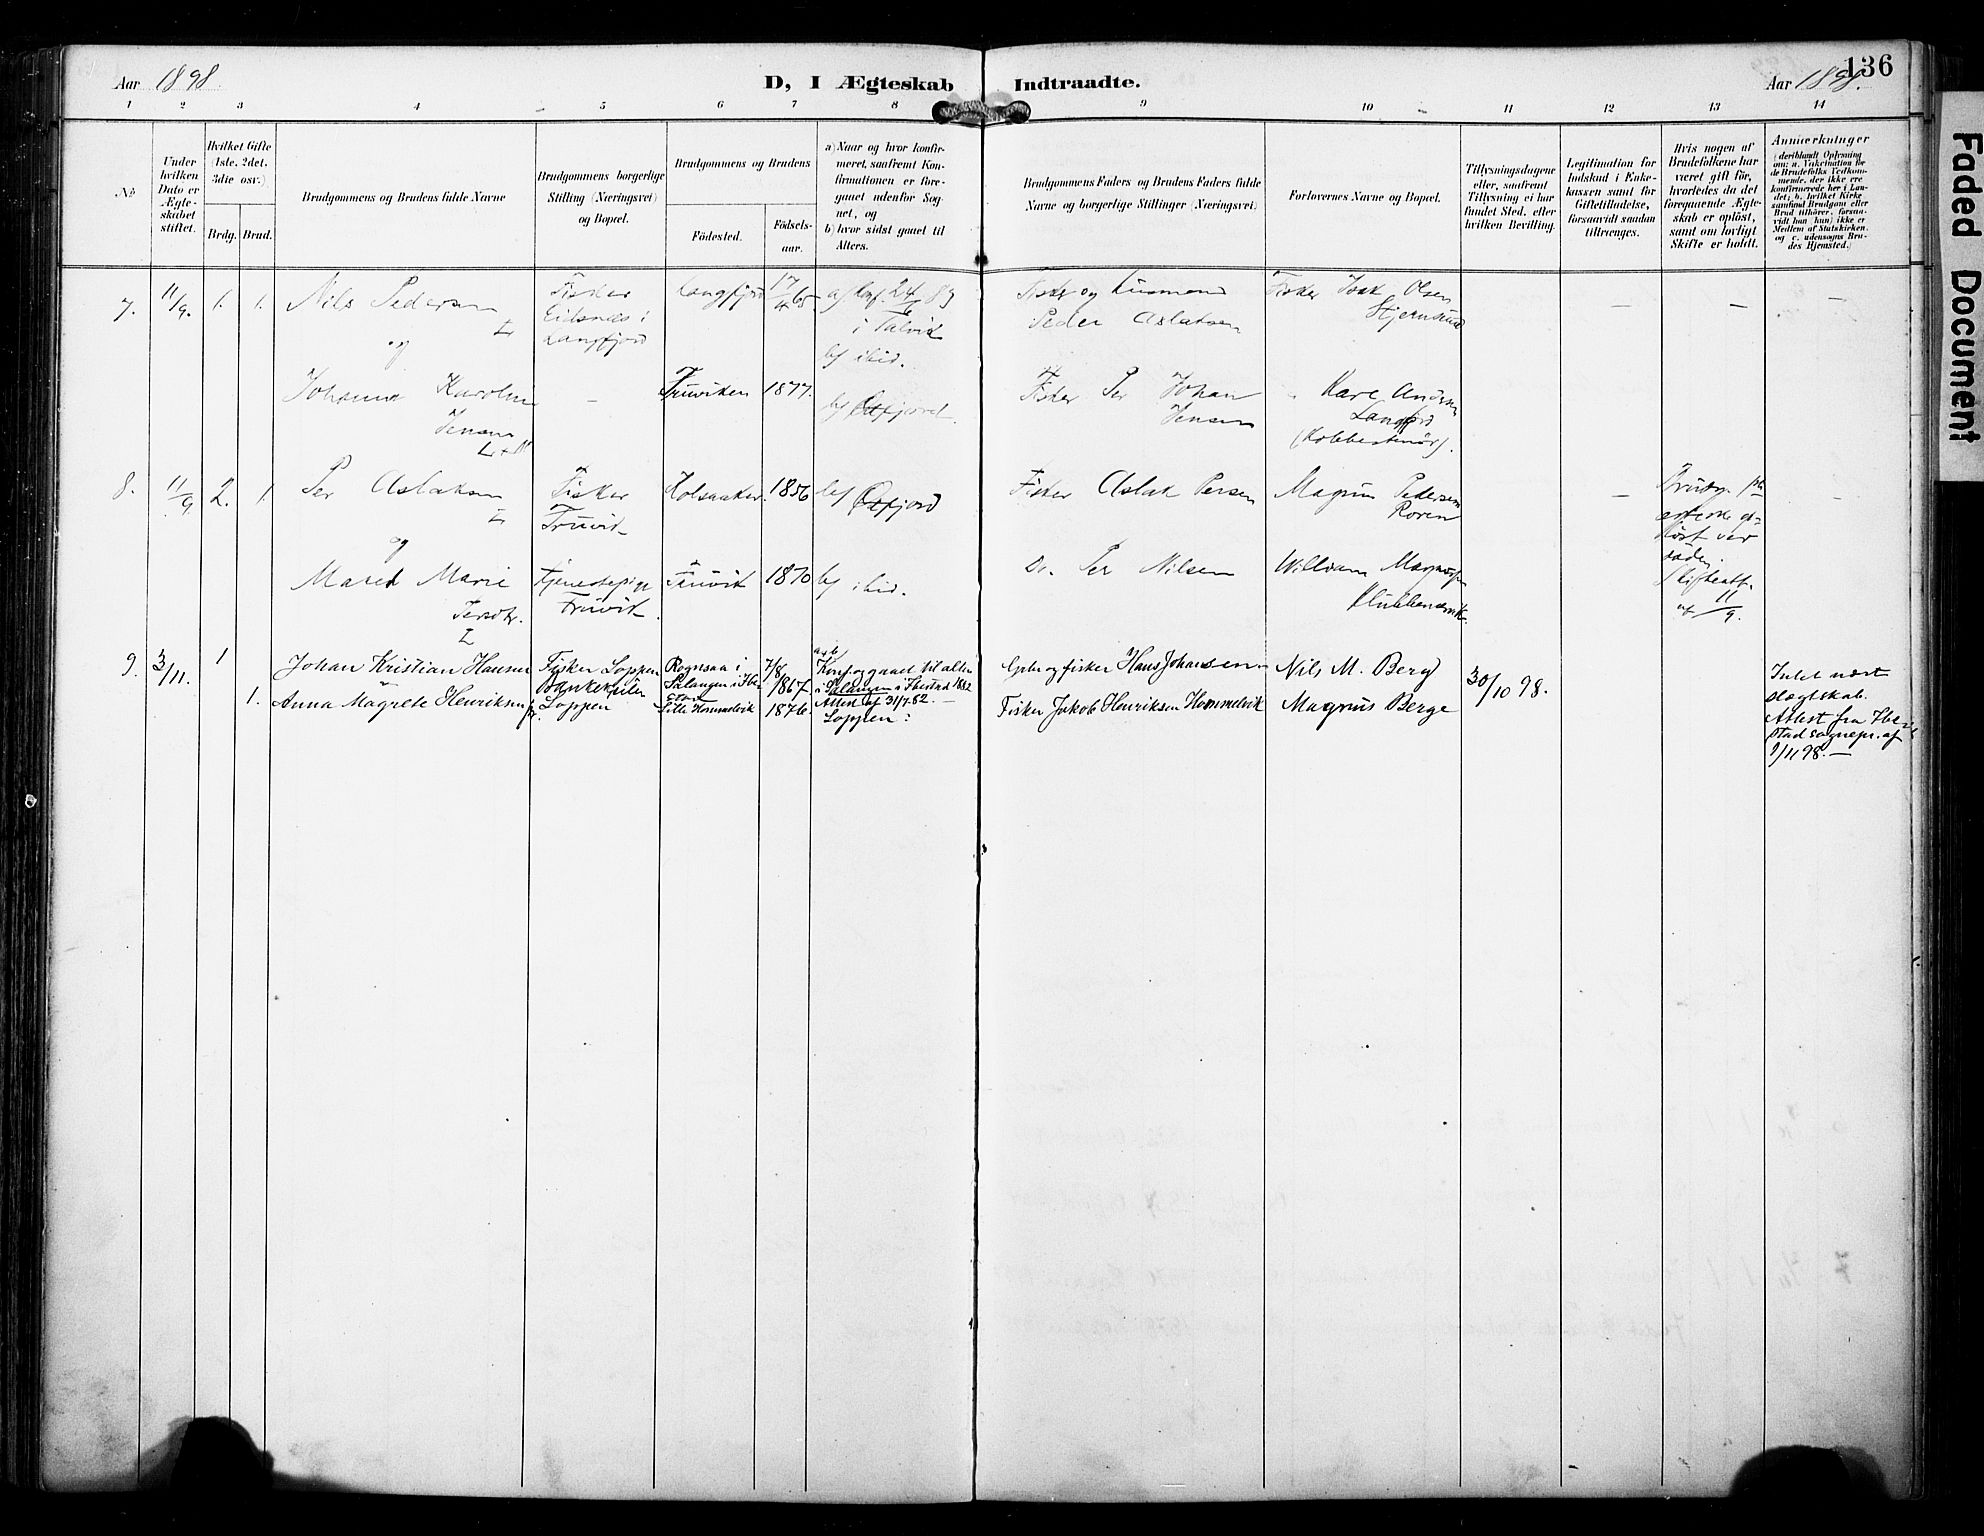 136
Aar 1898. D, I Ægteskab Indtraadte. Aar 1898.
1 2 3 4 5 6 7 8 9 10 11 12 13 14
No
Under hvilken Dato er Ægteskabet stiftet.
Hvilket Gifte (1ste, 2det, 3die osv.)
Brdg. Brud.
Brudgommens og Brudens fulde Navne
Brudgommens borgerlige Stilling (Næringsvei) og Bopæl.
Brudgommens og Brudens
Födested.
Födselsaar.
a) Naar og hvor konfirmeret, saafremt Konfirmationen er foregaaet udenfor Sognet, og
b) hvor sidst gaaet til Alters.
Brudgommens Faders og Brudens Faders fulde Navne og borgerlige Stillinger (Næringsvei)
Forlovernes Navne og Bopæl.
Tillysningsdagene eller, saafremt Tillysning ei har fundet Sted, efter hvilken Bevilling.
Legitimation for Indskud i Enkekassen samt for Giftetilladelse, forsaavidt saadan tiltrænges.
Hvis nogen af Brudefolkene har været gift för, hvorledes da det foregaaende Ægteskab er oplöst, samt om lovligt Skifte er holdt.
Anmærkninger
(deriblandt Oplysning om: a. Vakcination for de Brudefolks Vedkommende, der ikke ere konfirmerede her i Landet; b. hvilket Kirkesamfund Brudgom eller Brud tilhörer, forsaavidt han (hun) ikke er Medlem af Statskirken, og c. udensogns Brudes Hjemsted.)
7. 11/9. 1. 1. Nils Pedersen
L
og
Fisker
Eidsnæs i
Langfjord
Langfjord 17/4 65
a/ Konf. 24/6 83
i Talvik
b/ ibid.
Fisker og Husmand
Peder Aslaksen
Fisker Isak Olsen
Stjernsund
— — —
Johanna Karoline
Jensen
—
Fruviken 1877.
b/ Öxfjord.
Fisker Per Johan
Jensen
Karl Andersen
Langfjord
8. 11/9 2. 1. Per Aslaksen
L
og
Fisker
Fruvik
Kolsaaker. 1856 b/ Öxfjord
Fisker Aslak Persen
Magnus Pedersen
— —
11/9.
Mared Marie
Persdtr.
L
Tjenestepige
Fruvik.
Fruvik 1870 b/ ibid.
Do. Per Nilsen
William
9. 3/11. 1 Johan Kristian Hansen
Fisker Loppen
Rognsaa i
Salangen i Ibe-
stad
7/8 1867.
a & b
Konf. og gaaet til alter
i Salangen i Ibestad 1882
Attest af 31/7 62. —
Gbr. og fisker Hans Johansen
Nils M. Berg
30/10 98.
1. Anna Magrete Henriksen
Loppen
Lille Hommelvik 1876.
Loppen:
Fisker Jakob Henriksen Hommelvik
Magnus Berge
Intet nært
slægtskab.
Attest fra Ibe-
stad sognepr. af
1/11 98. —
Faded Document